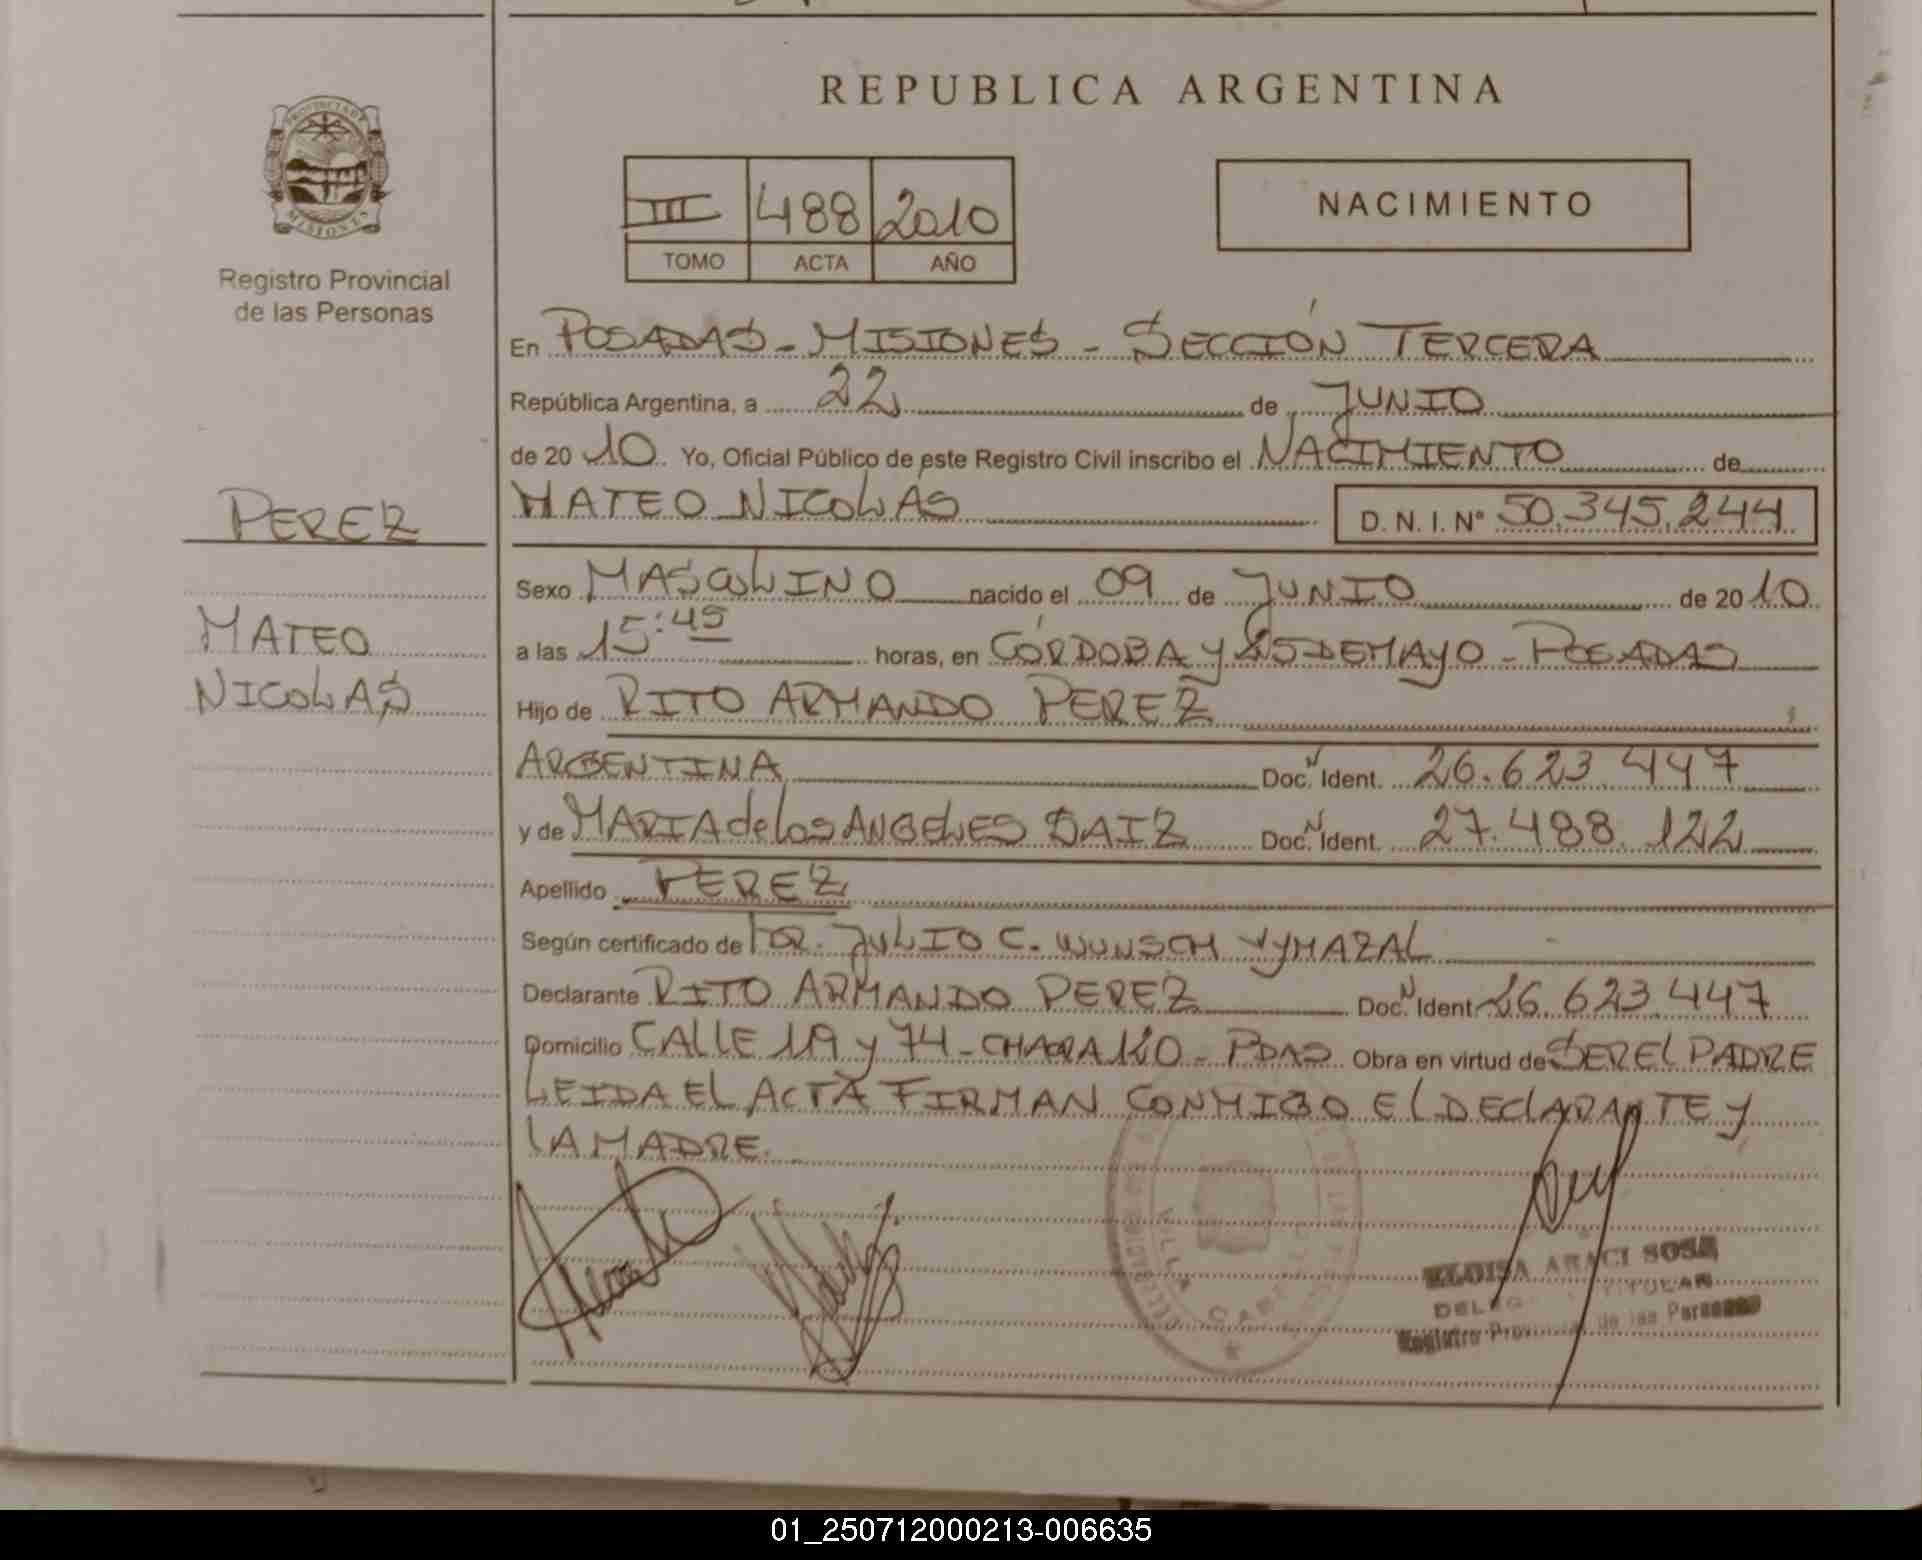 REPUBLICA ARGENTINA
PROVINCIA DE MISIONES
Registro Provincial
de las Personas
III 488 2010
TOMO ACTA AÑO
NACIMIENTO
En POSADAS - MISIONES - SECCIÓN TERCERA
República Argentina, a 22 de JUNIO
de 20 10 Yo, Oficial Público de este Registro Civil inscribo el NACIMIENTO de
PEREZ
MATEO NICOLÁS D. N. I. Nº 50.345.244
Sexo MASCULINO nacido el 09 de JUNIO de 20 10
MATEO
a las 15:45 horas, en CÓRDOBA y 25 DE MAYO - POSADAS
NICOLAS
Hijo de RITO ARMANDO PEREZ
ARGENTINA Doc. N Ident. 26.623.447
y de MARIA de los ANGELES Doc. N Ident. 27.488.122
Apellido PEREZ
Según certificado de DR. JULIO C. WUNSCH VYMAZAL
Declarante RITO ARMANDO PEREZ Doc. N Ident 26.623.447
Domicilio CALLE 119 y 74 - CHACRA 120 - PDAS Obra en virtud de SER EL PADRE
LEIDA EL ACTA FIRMAN CONMIGO El DEClARANTE y
lA MADRE.
VILLA CABELLO
ELOISA ARACI SOSA
TITULAR
Registro Provincial de las Personas
01_250712000213-006635